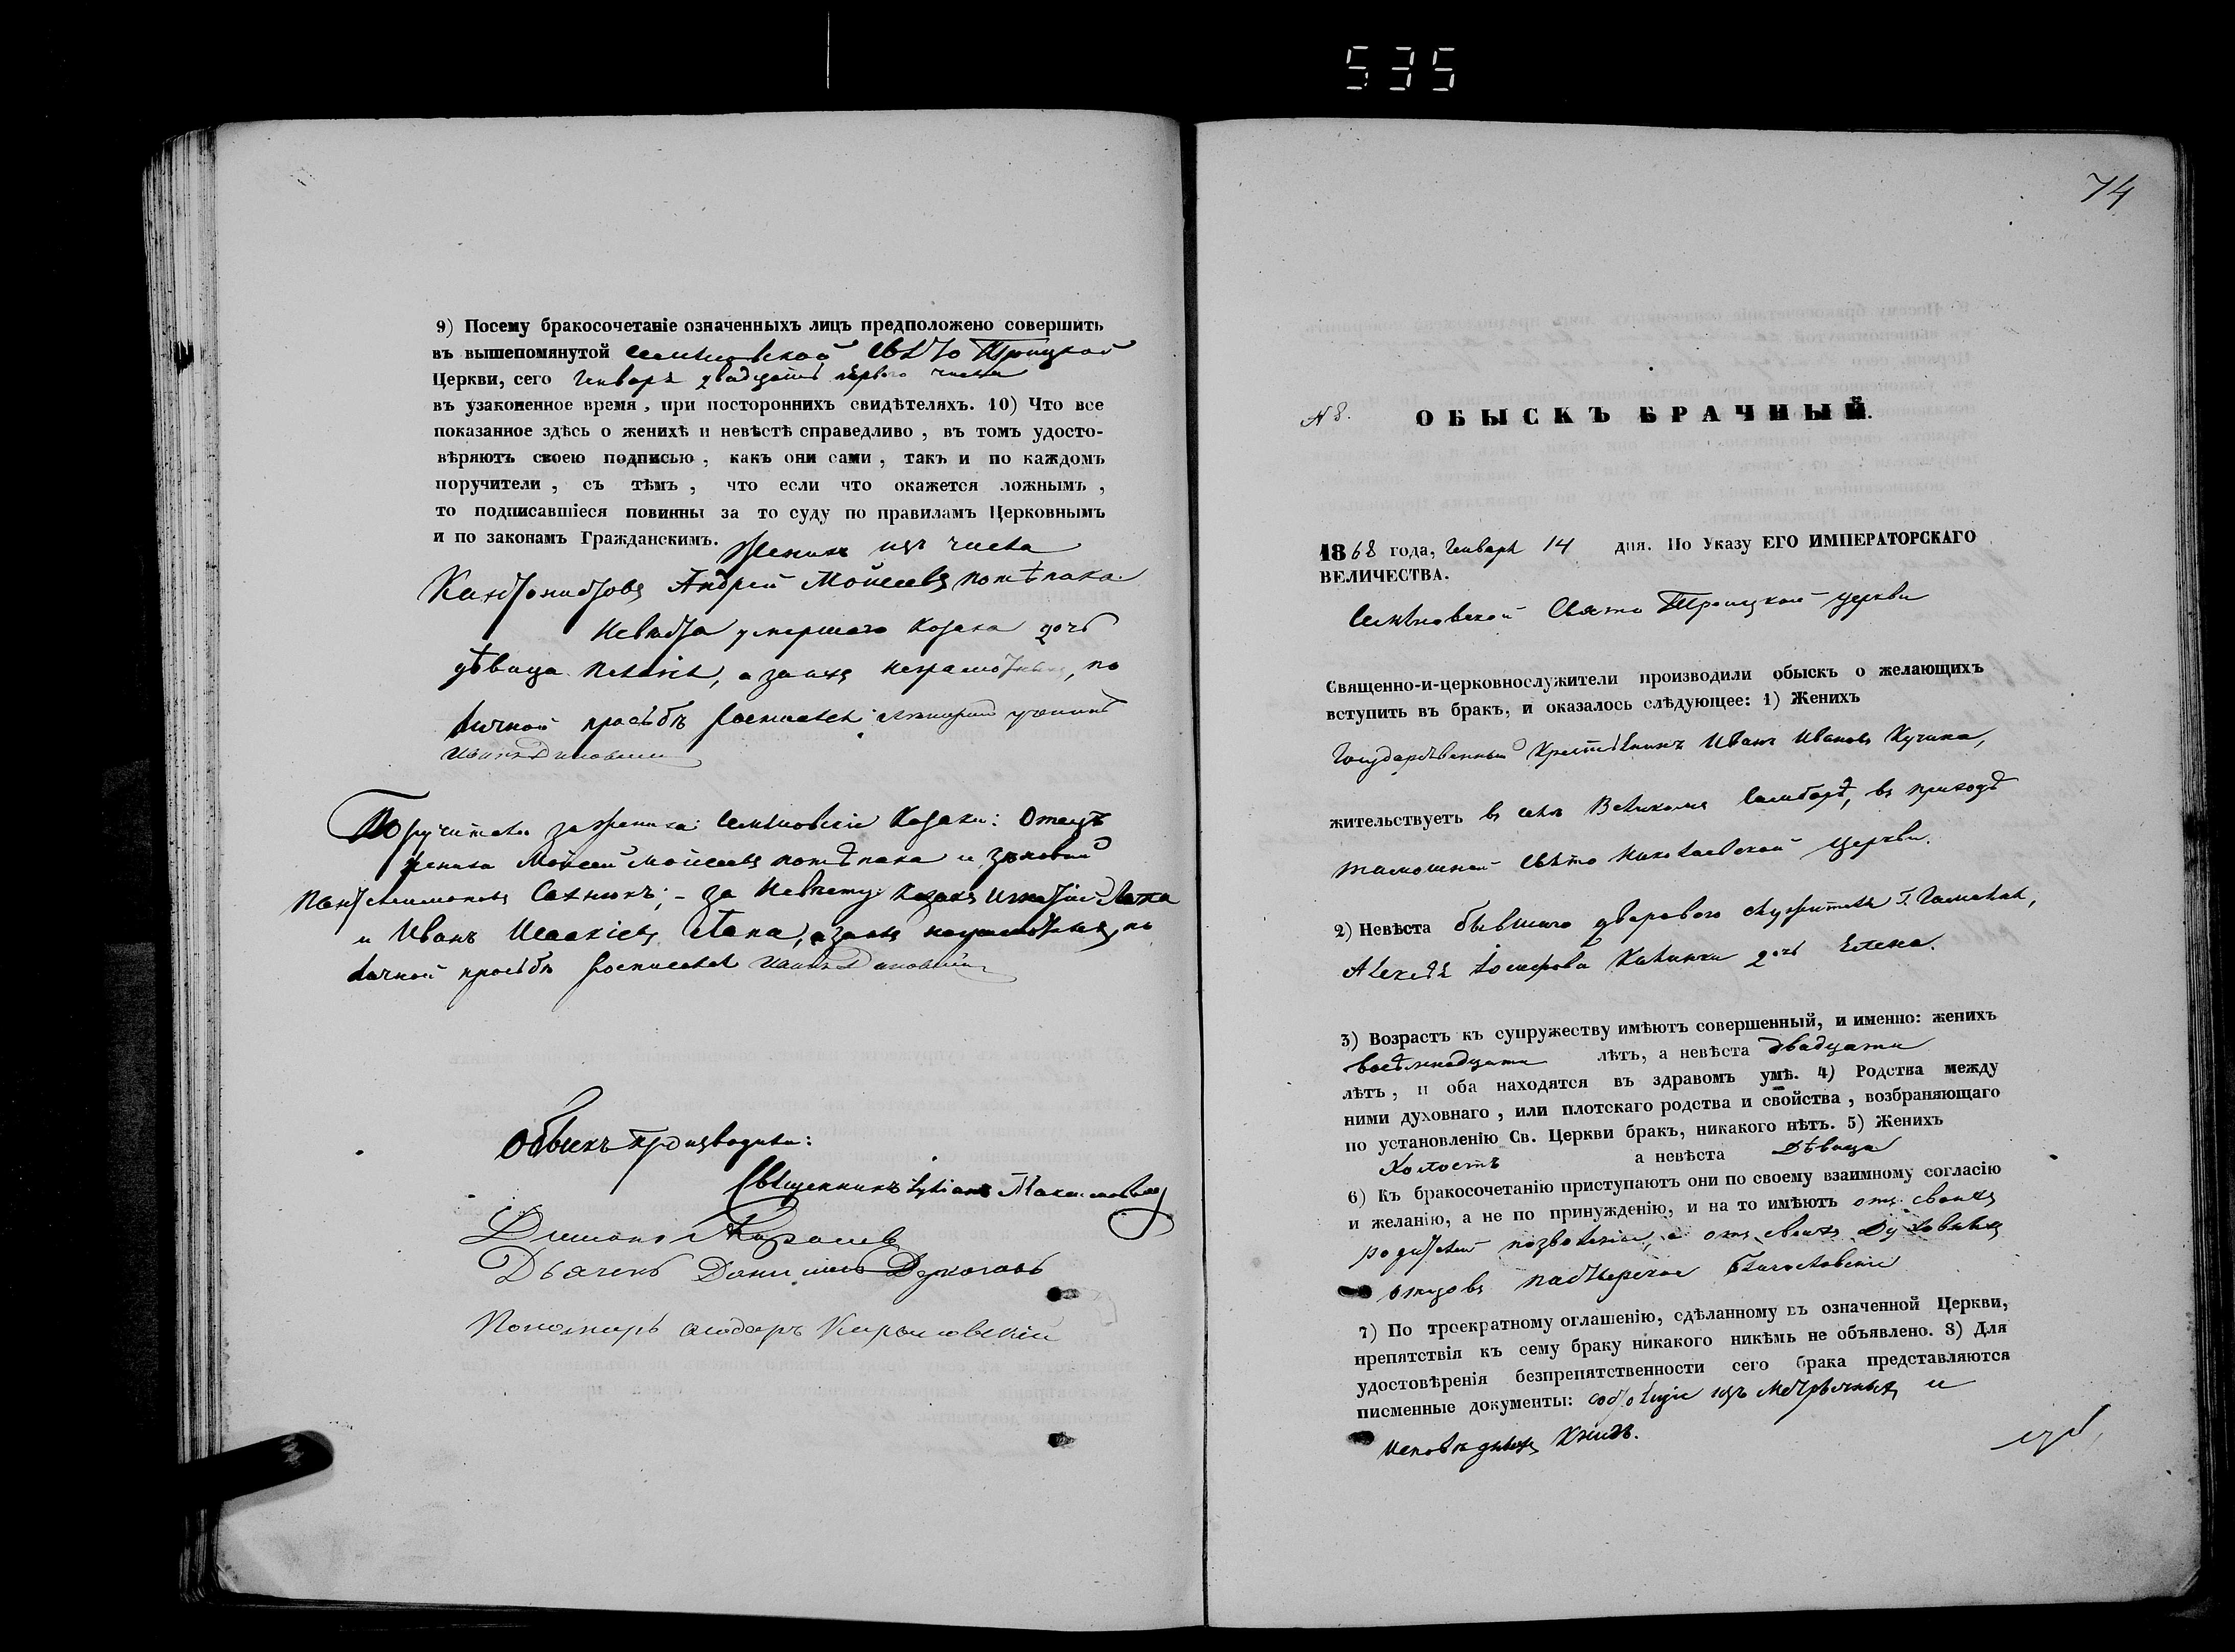 535
9) Посему бракосочетаніе означенныхъ лицъ предположено совершить
въ вышепомянутой Семѣновской Свято Троицкой
Церкви, сего Генваря двадцать первого числа
въ узаконенное время, при постороннихъ свидѣтеляхъ. 10) Что все
показанное здѣсь о женихѣ и невѣстѣ справедливо, въ томъ удосто-
вѣряютъ своею подписью, какъ они сами, такъ и по каждомъ
поручители, съ тѣмъ, что если что окажется ложнымъ,
то подписавшіеся повинны за то суду по правиламъ Церковнымъ
и по законамъ Гражданскимъ. Женихъ изъ числа
Кантонистовъ Андрей Моисеевъ Потѣпака
Невѣста умершаго Козака дочь
дѣвица а за ихъ неграмотныхъ, по
личной прозьбѣ росписался
Поручители за жениха: Семѣновскіе Козаки: Отецъ
жениха Моисей Моисеевъ Потѣпака и Зѣновій
Пантелеимоновъ Сахнюкъ; - за Невѣсту: Козакъ Игнатій Лапа
и Иванъ Исаакіевъ Лапа, а за ихъ неграмотныхъ, по
личной прозьбѣ росписался
Обыскъ производили:
Священникъ Максимовичъ
Дьячекъ
Пономарь
74
N 8.
ОБЫСКЪ БРАЧНЫЙ.
1868 года, Генваря 14 дня. По Указу ЕГО ИМПЕРАТОРСКАГО
ВЕЛИЧЕСТВА.
Семѣновской Свято Троицкой церкви
Священно-и-церковнослужители производили обыскъ о желающихъ
вступить въ бракъ, и оказалось слѣдующее: 1) Женихъ
Государственный Крестьянинъ Иванъ Ивановъ Кучина,
жительствуетъ въ селѣ Великомъ Самборѣ, въ приходѣ
тамошней Свято Николаевской церкви.
2) Невѣста бывшаго двороваго служителя Г. Гамалеи,
Алексѣя Іосифова Калинки дочь Елена.
3) Возрастъ къ супружеству имѣютъ совершенный, и именно: женихъ
восемнадцати лѣтъ, а невѣста двадцати
лѣтъ, и оба находятся въ здравомъ умѣ. 4) Родства между
ними духовнаго, или плотскаго родства и свойства, возбраняющаго
по установленію Св. Церкви бракъ, никакого нѣтъ. 5) Женихъ
Холостъ а невѣста Дѣвица
6) Къ бракосочетанію приступаютъ они по своему взаимному согласію
и желанію, а не по принужденію, и на то имѣютъ отъ своихъ
родителей позволеніе, а отъ своихъ Духовныхъ
отцовъ пастырское благословеніе
7) По троекратному оглашенію, сдѣланному въ означенной Церкви,
препятствія къ сему браку никакого никѣмъ не объявлено. 8) Для
удостовѣренія безпрепятственности сего брака представляются
писменные документы: изъ Метрычныхъ и
Исповѣдныхъ Книгъ.